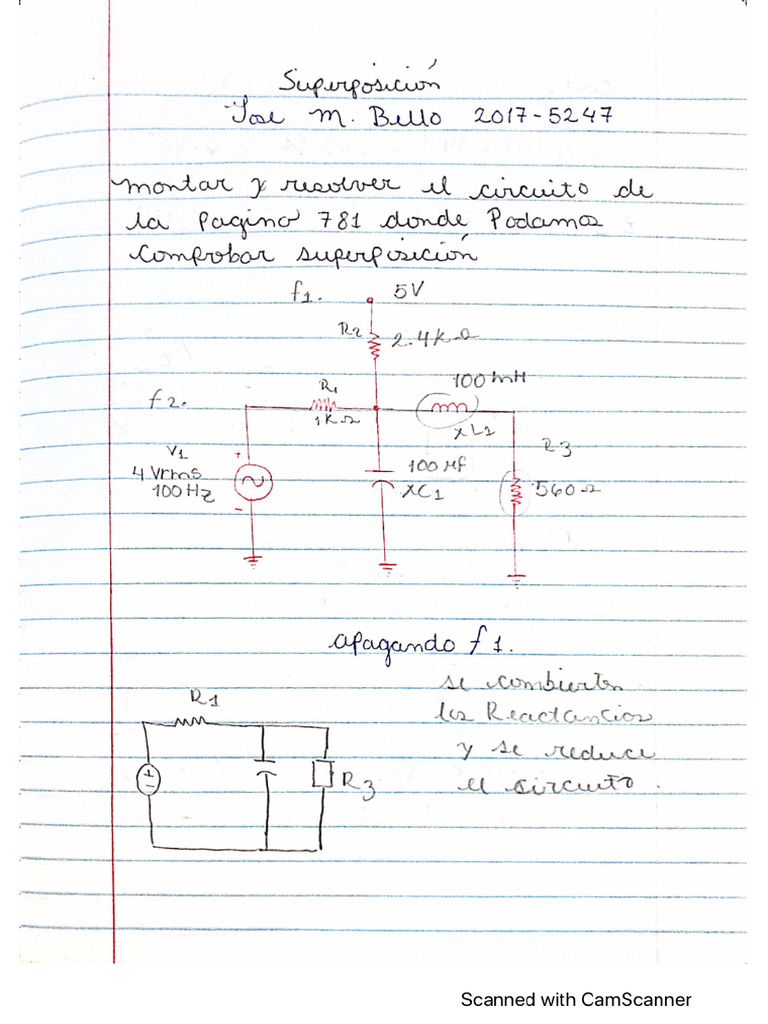 Superposición
Jose M. Bello 2017-5247
montar y resolver el circuito de
la pagina 781 donde Podamos
comprobar superposición
f1. 5V
R2 2.4kΩ
100mH
R1
f2.
1kΩ
XL1
R3
V1 +
4 Vrms
100Hz
-
100 Mf
XC1
560Ω
apagando f1.
se combierten
las Reactancias
y se reduce
el circuito.
R1
+
-
R3
Scanned with CamScanner